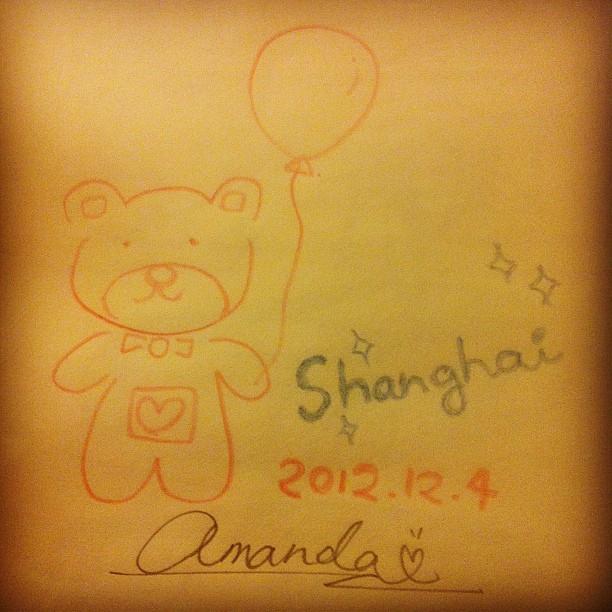 Shanghai
2012.12.4
Amanda